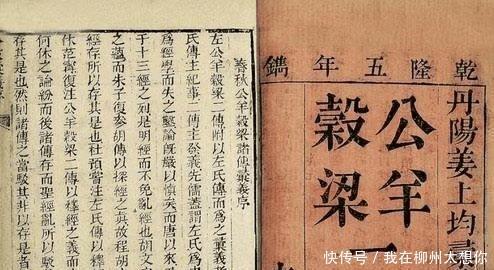 乾隆五年鐫
丹陽姜上均
公羊
穀梁
春秋公羊穀梁諸傳彙義序
公羊穀梁二傳附以左氏傳而為之彙義者
左氏傳主紀事二傳主發義先儒蓋謂左氏傳
為經學之論既嚴以慎矣而唐以失之
于十三經之列是明經而不免亂經也胡文
之蘊而朱子復參胡傳以探經之真故程胡
經存所以存是也杜預嘗注左氏傳以釋經
休范甯復注公羊穀梁二傳以釋經之義而
何休之論紛而後諸傳存而聖經亂
存其是也然則諸傳之當駁其非以存是者
快传号 / 我在柳州太想你